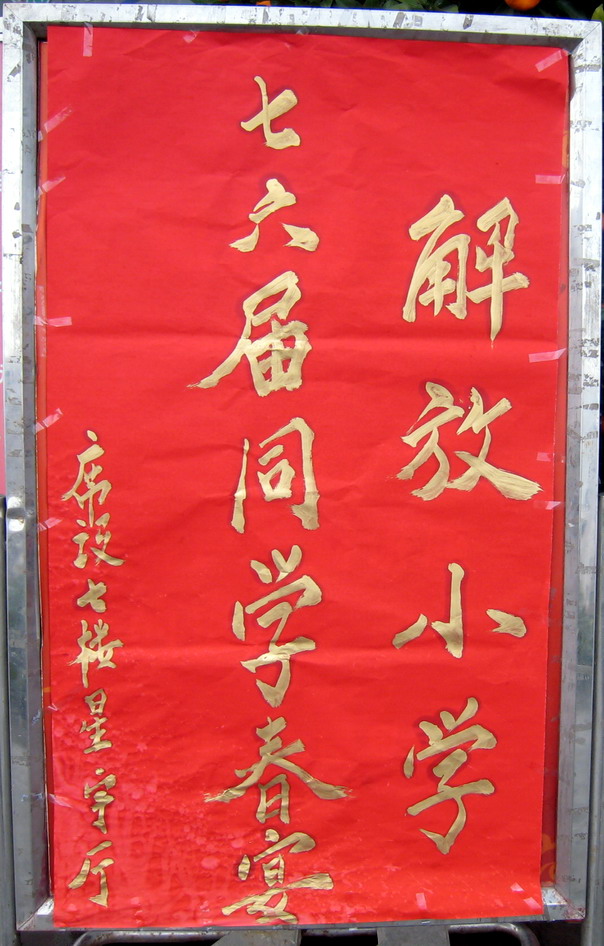 解放小学
七六届同学春宴
席设七楼星宇厅